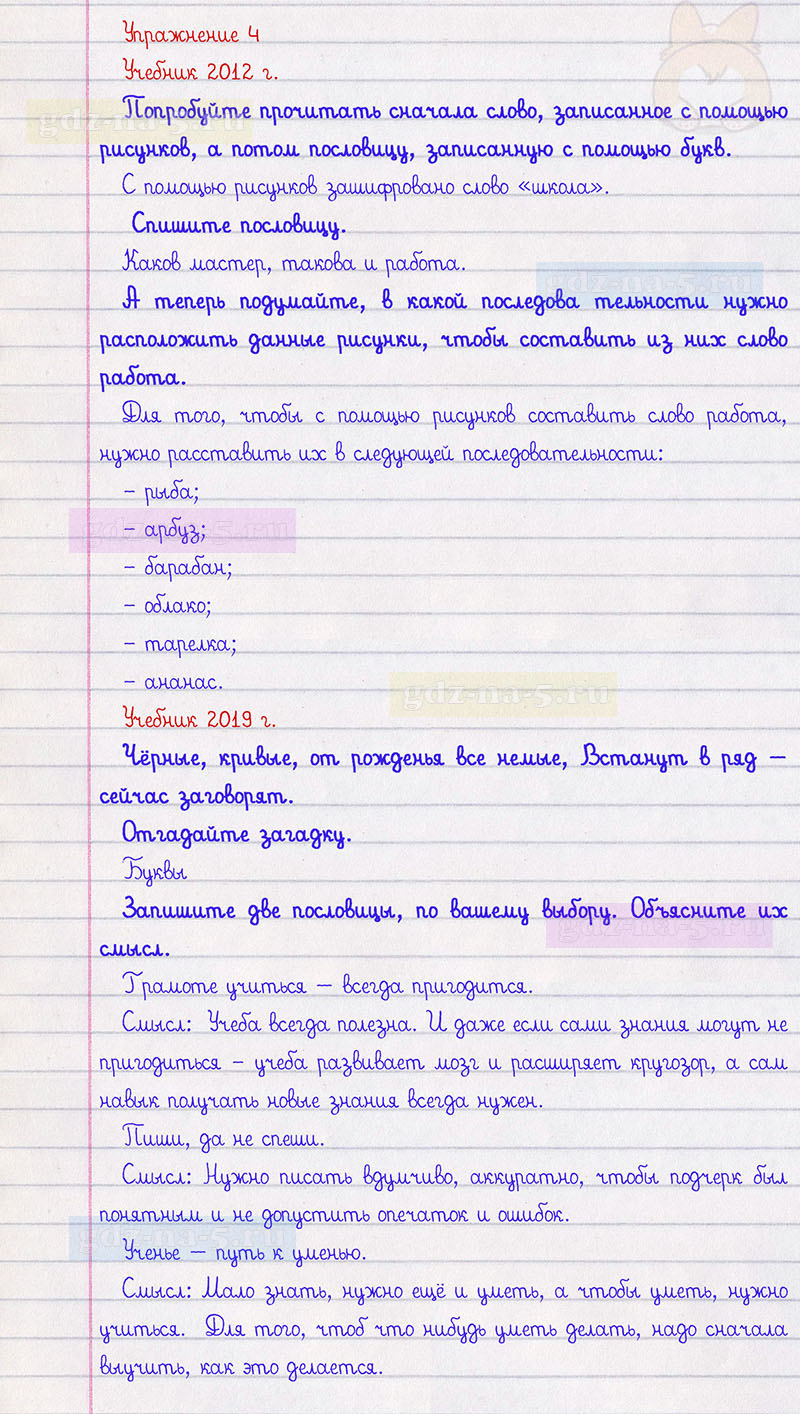 Упражнение 4
Учебник 2012 г.
Попробуйте прочитать сначала слово, записанное с помощью
рисунков, а потом пословицу, записанную с помощью букв.
С помощью рисунков зашифровано слово «школа».
Спишите пословицу.
Каков мастер, такова и работа.
А теперь подумайте, в какой последова тельности нужно
расположить данные рисунки, чтобы составить из них слово
работа.
Для того, чтобы с помощью рисунков составить слово работа,
нужно расставить их в следующей последовательности:
– рыба;
– арбуз;
– барабан;
– облако;
– тарелка;
– ананас.
Учебник 2019 г.
Чёрные, кривые, от рожденья все немые, Встанут в ряд –
сейчас заговорят.
Отгадайте загадку.
Буквы
Запишите две пословицы, по вашему выбору. Объясните их
смысл.
Грамоте учиться – всегда пригодится.
Смысл: Учеба всегда полезна. И даже если сами знания могут не
пригодиться – учеба развивает мозг и расширяет кругозор, а сам
навык получать новые знания всегда нужен.
Пиши, да не спеши.
Смысл: Нужно писать вдумчиво, аккуратно, чтобы подчерк был
понятным и не допустить опечаток и ошибок.
Ученье – путь к уменью.
Смысл: Мало знать, нужно ещё и уметь, а чтобы уметь, нужно
учиться. Для того, чтоб что нибудь уметь делать, надо сначала
выучить, как это делается.
gdz-na-5.ru
gdz-na-5.ru
gdz-na-5.ru
gdz-na-5.ru
gdz-na-5.ru
gdz-na-5.ru